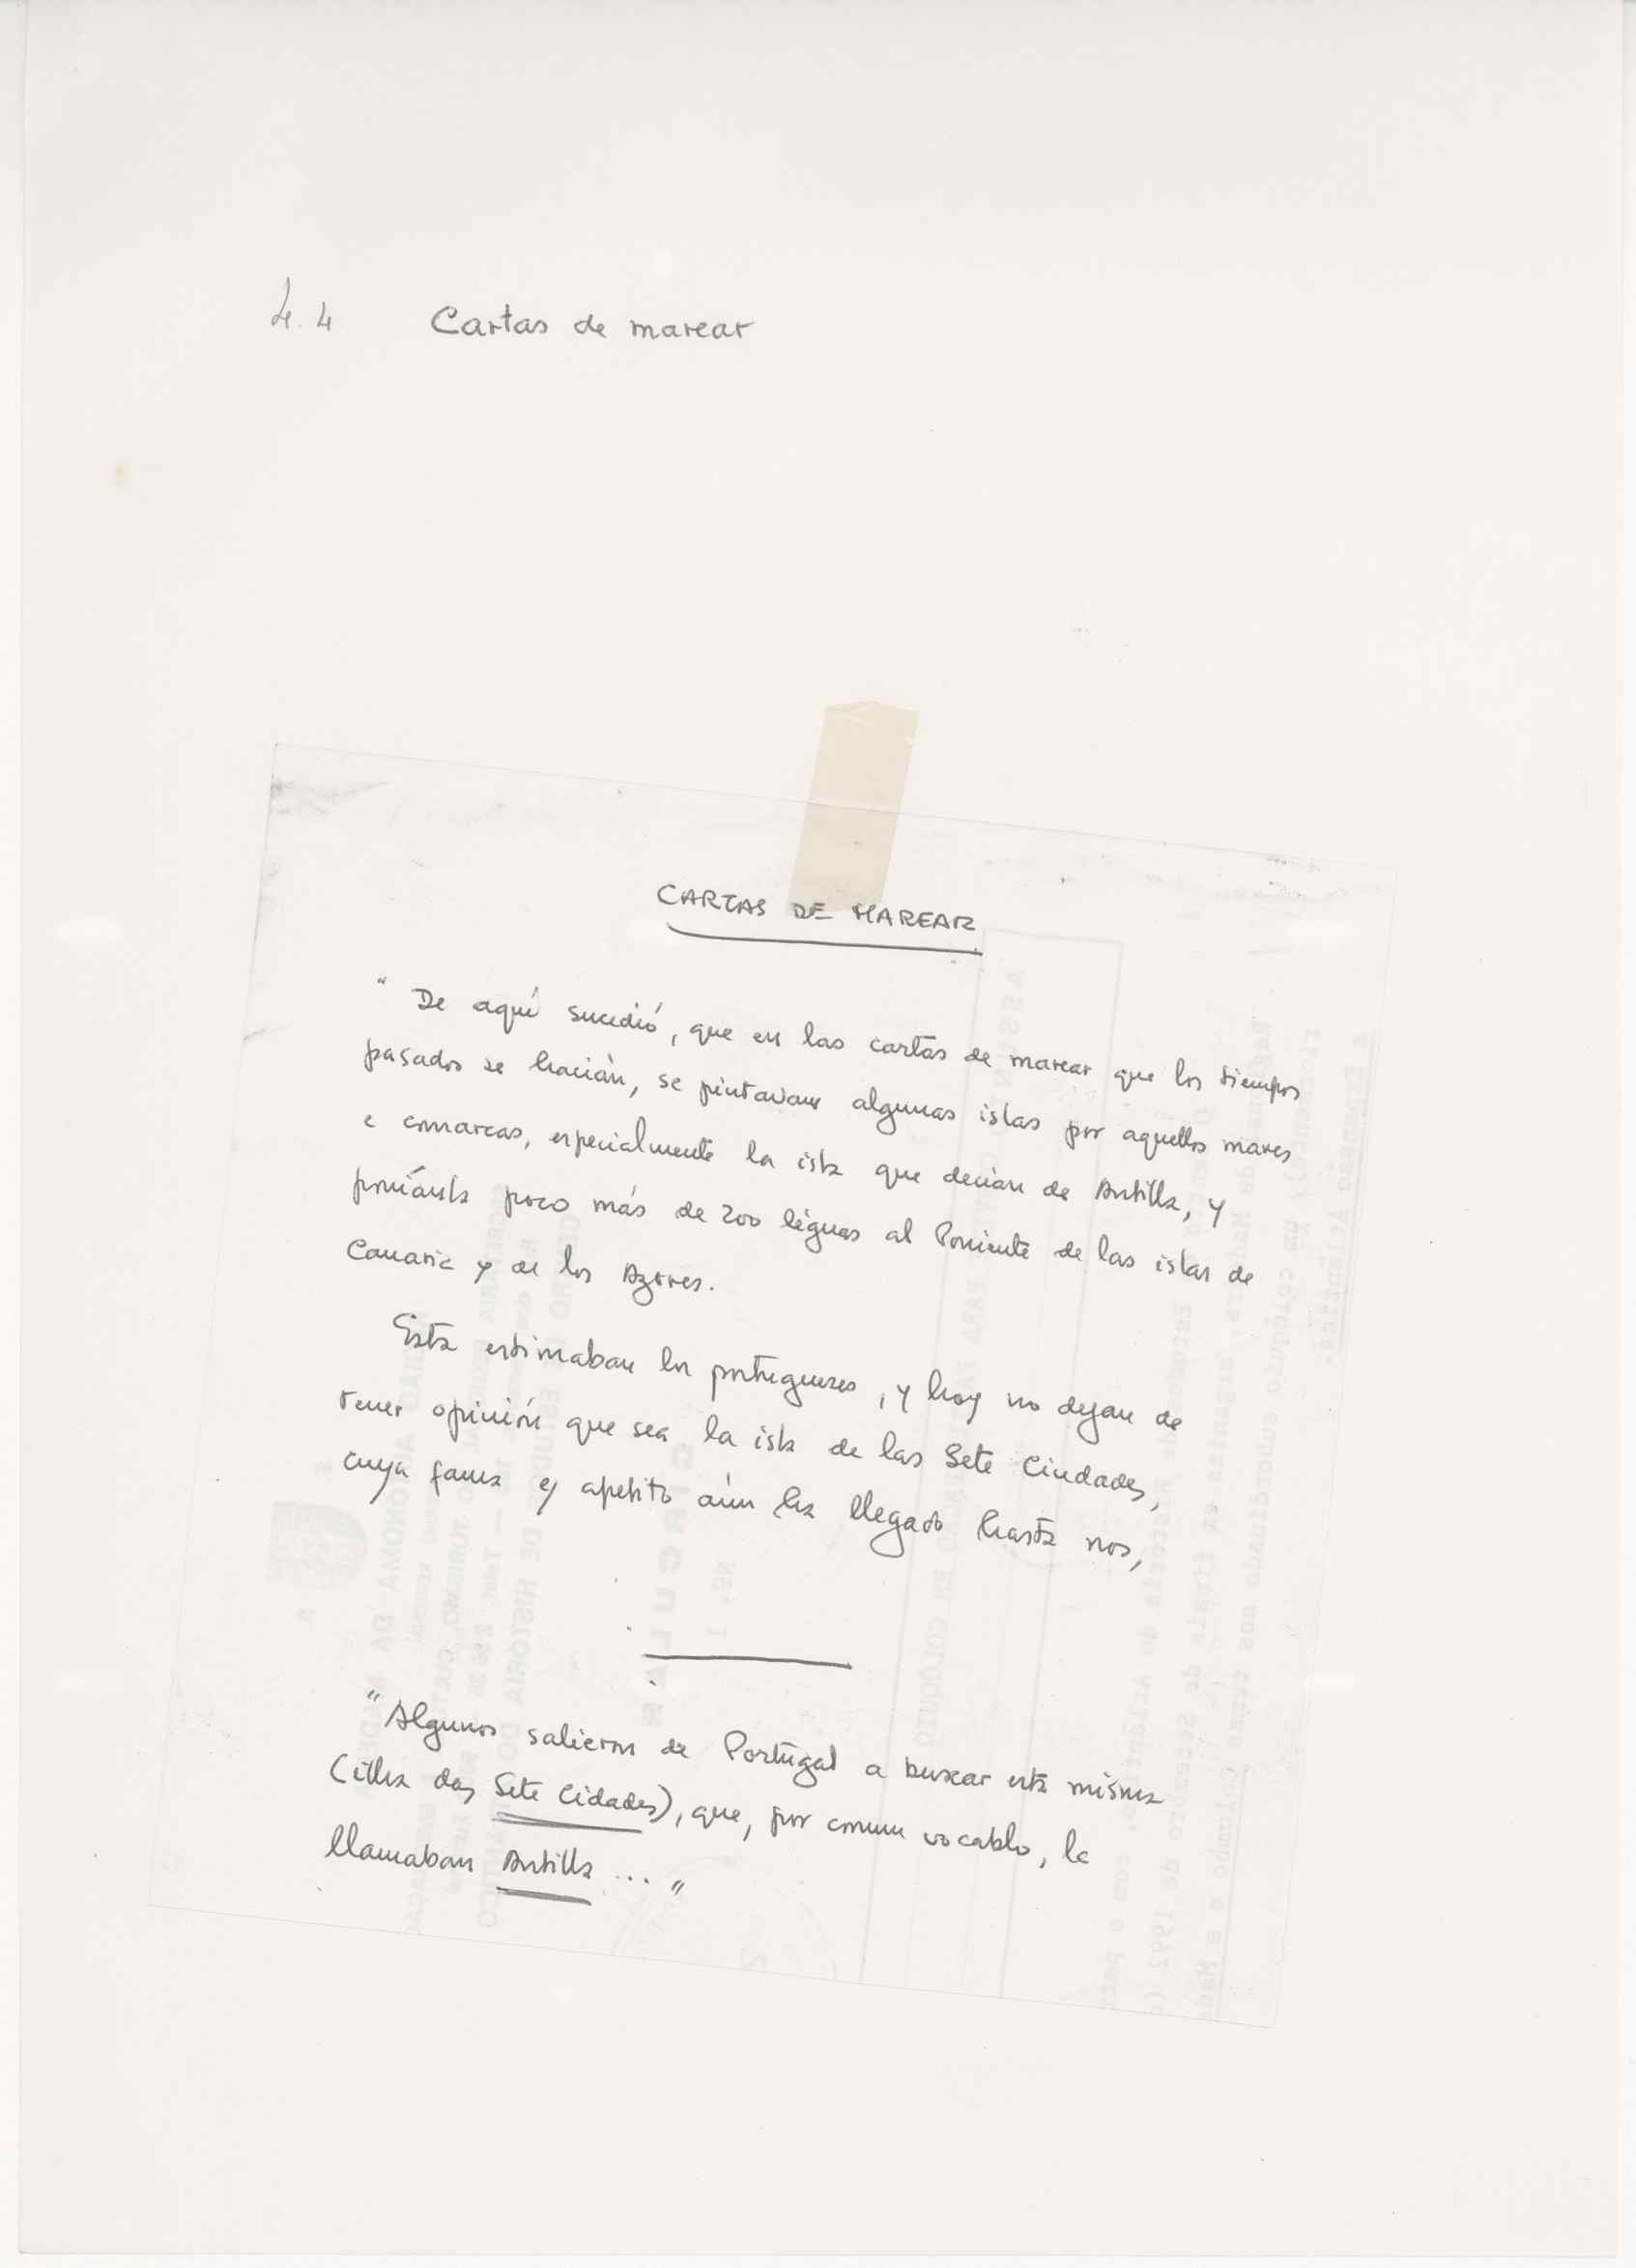 4.4 Cartas de marear
CARTAS DE MAREAR
" De aquí sucedió, que en las cartas de marear que los tiempos
pasados se hacián, se pintavan algunas islas por aquellos mares
e comarcas, especialmente la isla que decian de Antilla, y
poníanla poco más de 200 léguas al Poniente de las islas de
Canaria y de los Azores.
Esta estimaban los portugueses, y hoy no dejan de
tener opinión que sea la isla de las Sete Ciudades,
cuya fama y apetito aún ha llegado hasta nos,
"Algunos salieron de Portugal a buscar esta misma
(ilha das Sete Cidades), que, por comun vocablo, la
llamaban Antilla ... "